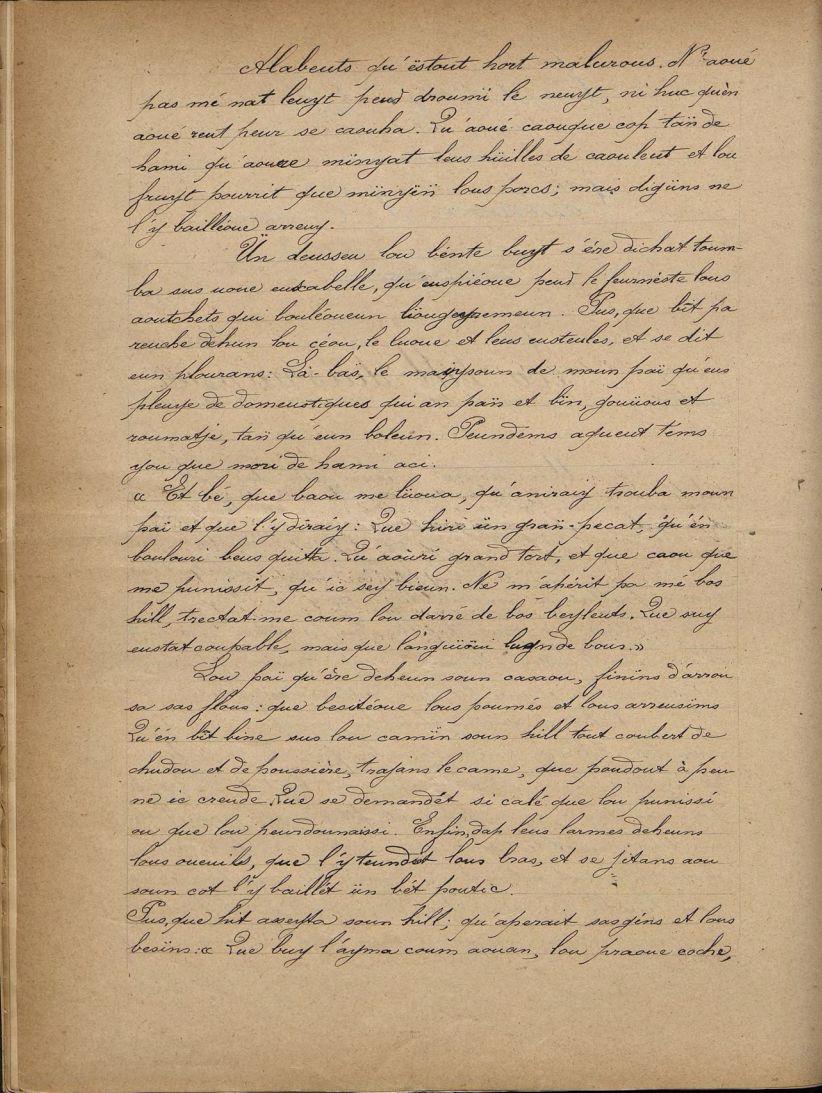 Alabeuts qu'ëstout hort malurous. N'aoué
pas mé nat leuyt peud droumï le neuyt, ni huc quèn
aoué reut peur se caouha. Qu'aoué caouque cop tan de
hami qu'aoure mïnyat leus hüilles de caouleut et lou
fruyt pourrit que mïnyën lous porcs; mais digüns ne
l'y bailléoue arreuy.
Ün deusseu lou bénte buyt s'ére dichat toum-
ba sus uoue euscabelle, qu'euspiéoue peud le feurnéste lous
aoutchets qui bouléoueun liougeyremeun. Pus, que bit pa
reuche dehun lou céou, le luoue et leus eusteules, et se dit
eun plourans: La-bas, le mayysoun de moun païi qu'eus
pleuye de domeustiques qui an pan et bin, gouïous et
roumatje, tan qu'eun boleun. Peundems aqueut tems
you que mori de hami aci.
« Et bé, que baou me lioua, qu'aniraiy trouba moun
paï et que l'y diraiy: Que huri ün gran pecat, qu'én
boulouri beus quitta. Qu'aoüri grand tort, et que caou que
me punissit, qu'ic sey bieun. Ne m'apérit pa mé bos
hill, trectat-me coum lou darré de bos beyleuts. Que suy
eustat coupable, mais que languiouï luyn de bous.»
Lou paï qu'ère deheun soun casaou, finïns d'arrou
sa sas flous: que besitéoue lous poumés et lous arreusims
Qu'én bit bine sus lou camïn soun hill tout coubert de
chudou et de poussière, trajans le came, que poudout à peu-
ne ic creude. Que se demandét si calé que lou punissi
ou que lou peurdounaissi. Enfin, dap leus larmes deheuns
lous oueuilhs, que l'y teundut lous bras, et se jitans aou
soun cot l'y baillét ün bét poutic.
Pus, que hit asseyta soun hill; qu'aperait sas gens et lous
besïns: « Que buy l'ayma coum aouan, lou praoue coche,